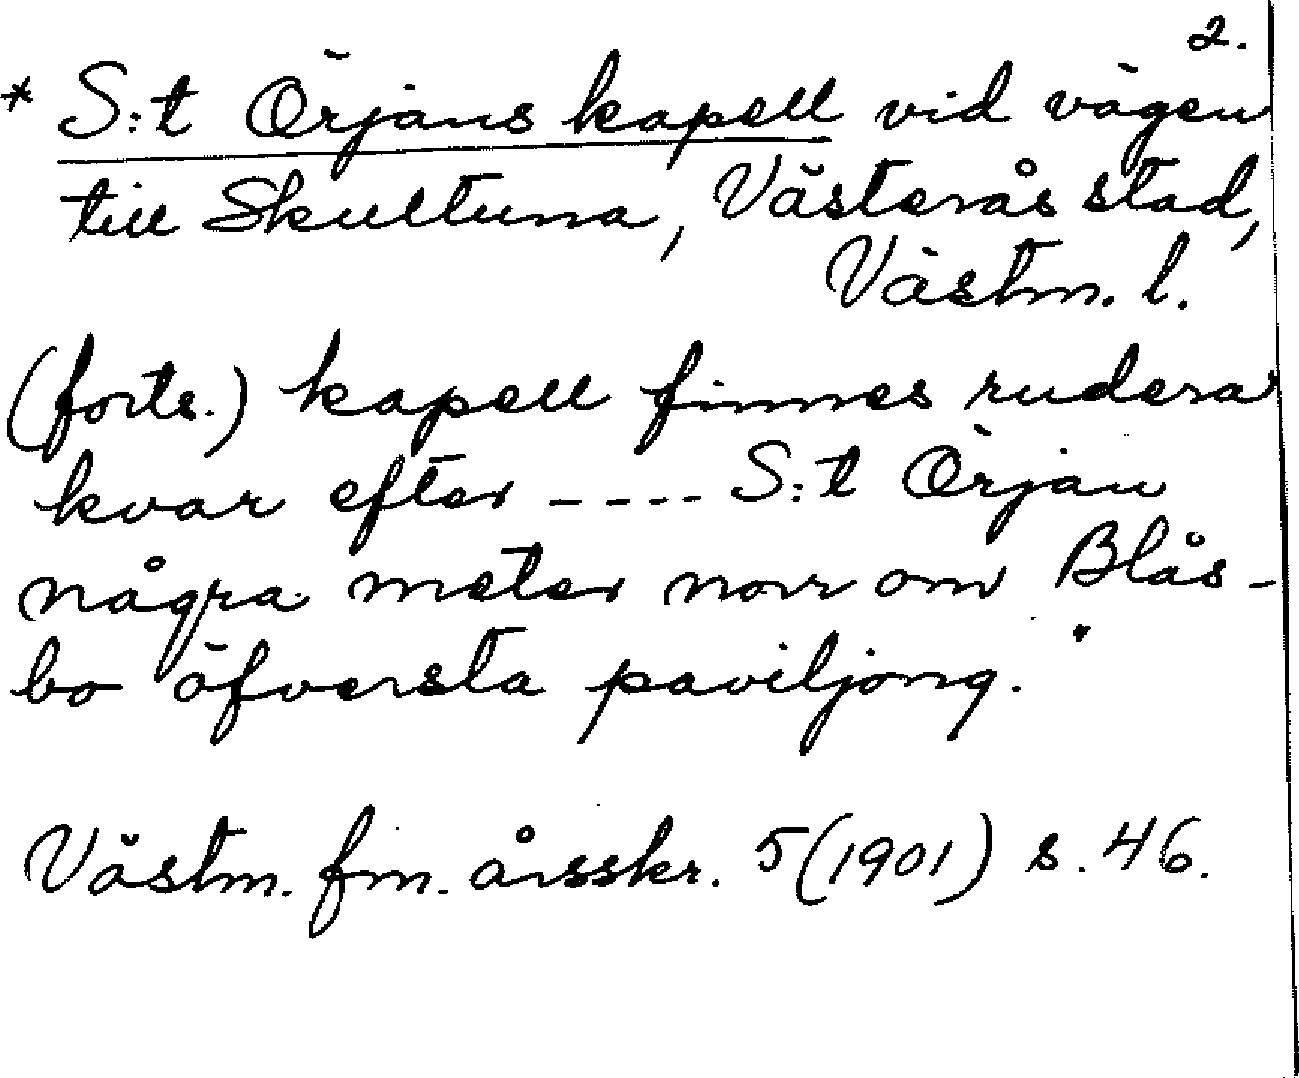 2.
* S:t Örjans kapell vid vägen
till Skultuna, Västerås stad,
Västm. l.
(forts.) kapell finnes rudera
kvar efter ---- S:t Örjan
några meter norr om Blås-
bo öfversta paviljong."
Västm. fm. årsskr. 5(1901) s. 46.